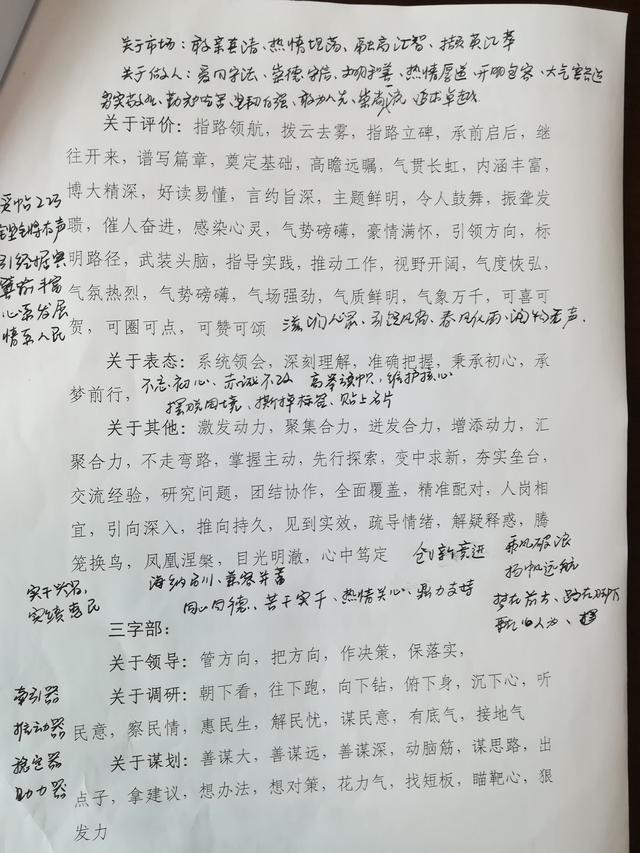 关于市场：敢亲且清、热情坦荡、融商汇智、撷英汇萃
关于做人：爱国守法、崇德守信、文明和善、热情厚道、开明包容、大气
务实、坚韧自强、敢为人先、崇尚一流、追求卓越
关于评价：指路领航，拨云去雾，指路立碑，承前启后，继
往开来，谱写篇章，奠定基础，高瞻远瞩，气贯长虹，内涵丰富，
博大精深，好读易懂，言约旨深，主题鲜明，令人鼓舞，振聋发
聩，催人奋进，感染心灵，气势磅礴，豪情满怀，引领方向，标
明路径，武装头脑，指导实践，推动工作，视野开阔，气度恢弘，
气氛热烈，气势磅礴，气场强劲，气质鲜明，气象万千，可喜可
贺，可圈可点，可赞可颂 滋润人心、引领风尚、春风化雨、润物无声
引经据典
心系发展
情系人民
关于表态：系统领会，深刻理解，准确把握，秉承初心，承
梦前行，不忘初心、赤诚不改 高举旗帜、维护核心
摆脱困境、撕掉标签、贴上名片
关于其他：激发动力，聚集合力，迸发合力，增添动力，汇
聚合力，不走弯路，掌握主动，先行探索，变中求新，夯实垒台，
交流经验，研究问题，团结协作，全面覆盖，精准配对，人岗相
宜，引向深入，推向持久，见到实效，疏导情绪，解疑释惑，腾
笼换鸟，凤凰涅槃，目光明澈，心中笃定 创新竞进
乘风破浪
扬帆远航
海纳百川、兼容并蓄
同心同德、苦干实干、热情关心、鼎力支持
梦在前方、路在脚下
事在人为
实干兴省，
实绩惠民
三字部：
关于领导：管方向，把方向，作决策，保落实，
关于调研：朝下看，往下跑，向下钻，俯下身，沉下心，听
民意，察民情，惠民生，解民忧，谋民意，有底气，接地气
关于谋划：善谋大，善谋远，善谋深，动脑筋，谋思路，出
点子，拿建议，想办法，想对策，花力气，找短板，瞄靶心，狠
发力
牵引器
推动器
稳定器
助力器